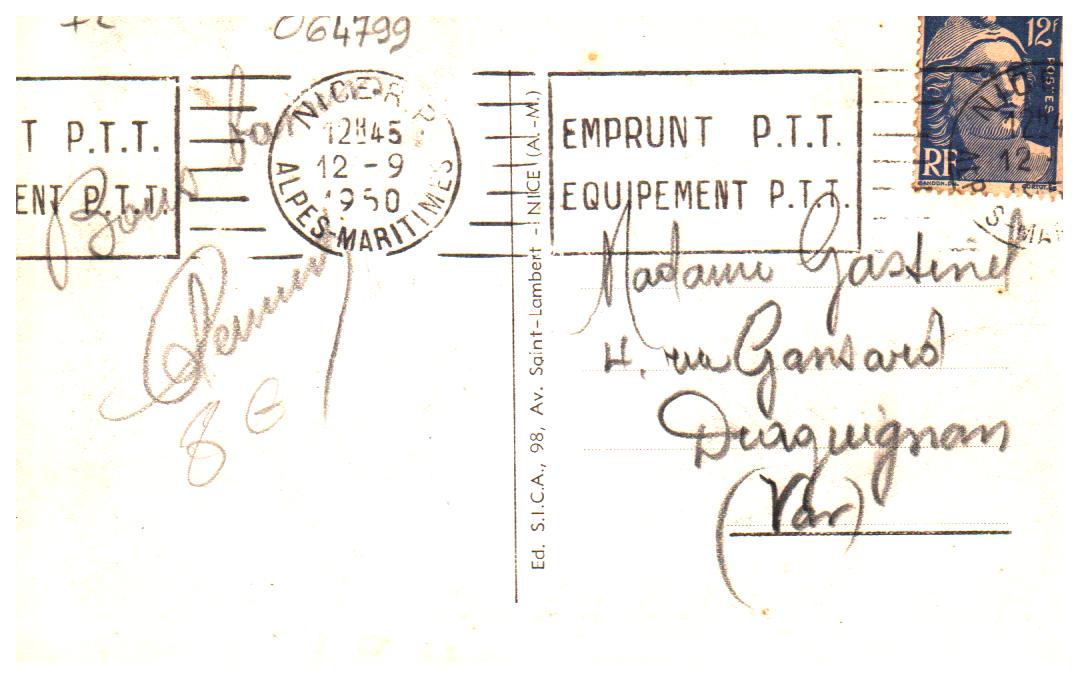 064799
T P.T.T.
ENT P.T.T.
Bons
NICE R.P.
12H45
12 -9
1950
ALPES-MARITIMES
Ed. S.I.C.A., 98, Av. Saint-Lambert - NICE (A.-M.)
EMPRUNT P.T.T.
EQUIPEMENT P.T.T.
12f
POSTES
RF
GANDON
12
Madame Gastinel
4, rue Gansard
Duraguignan
(Var)